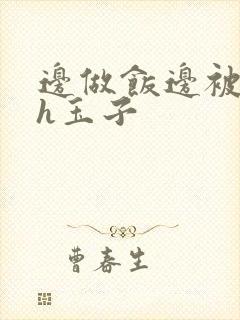 邊做飯邊被
h玉子
曹春生